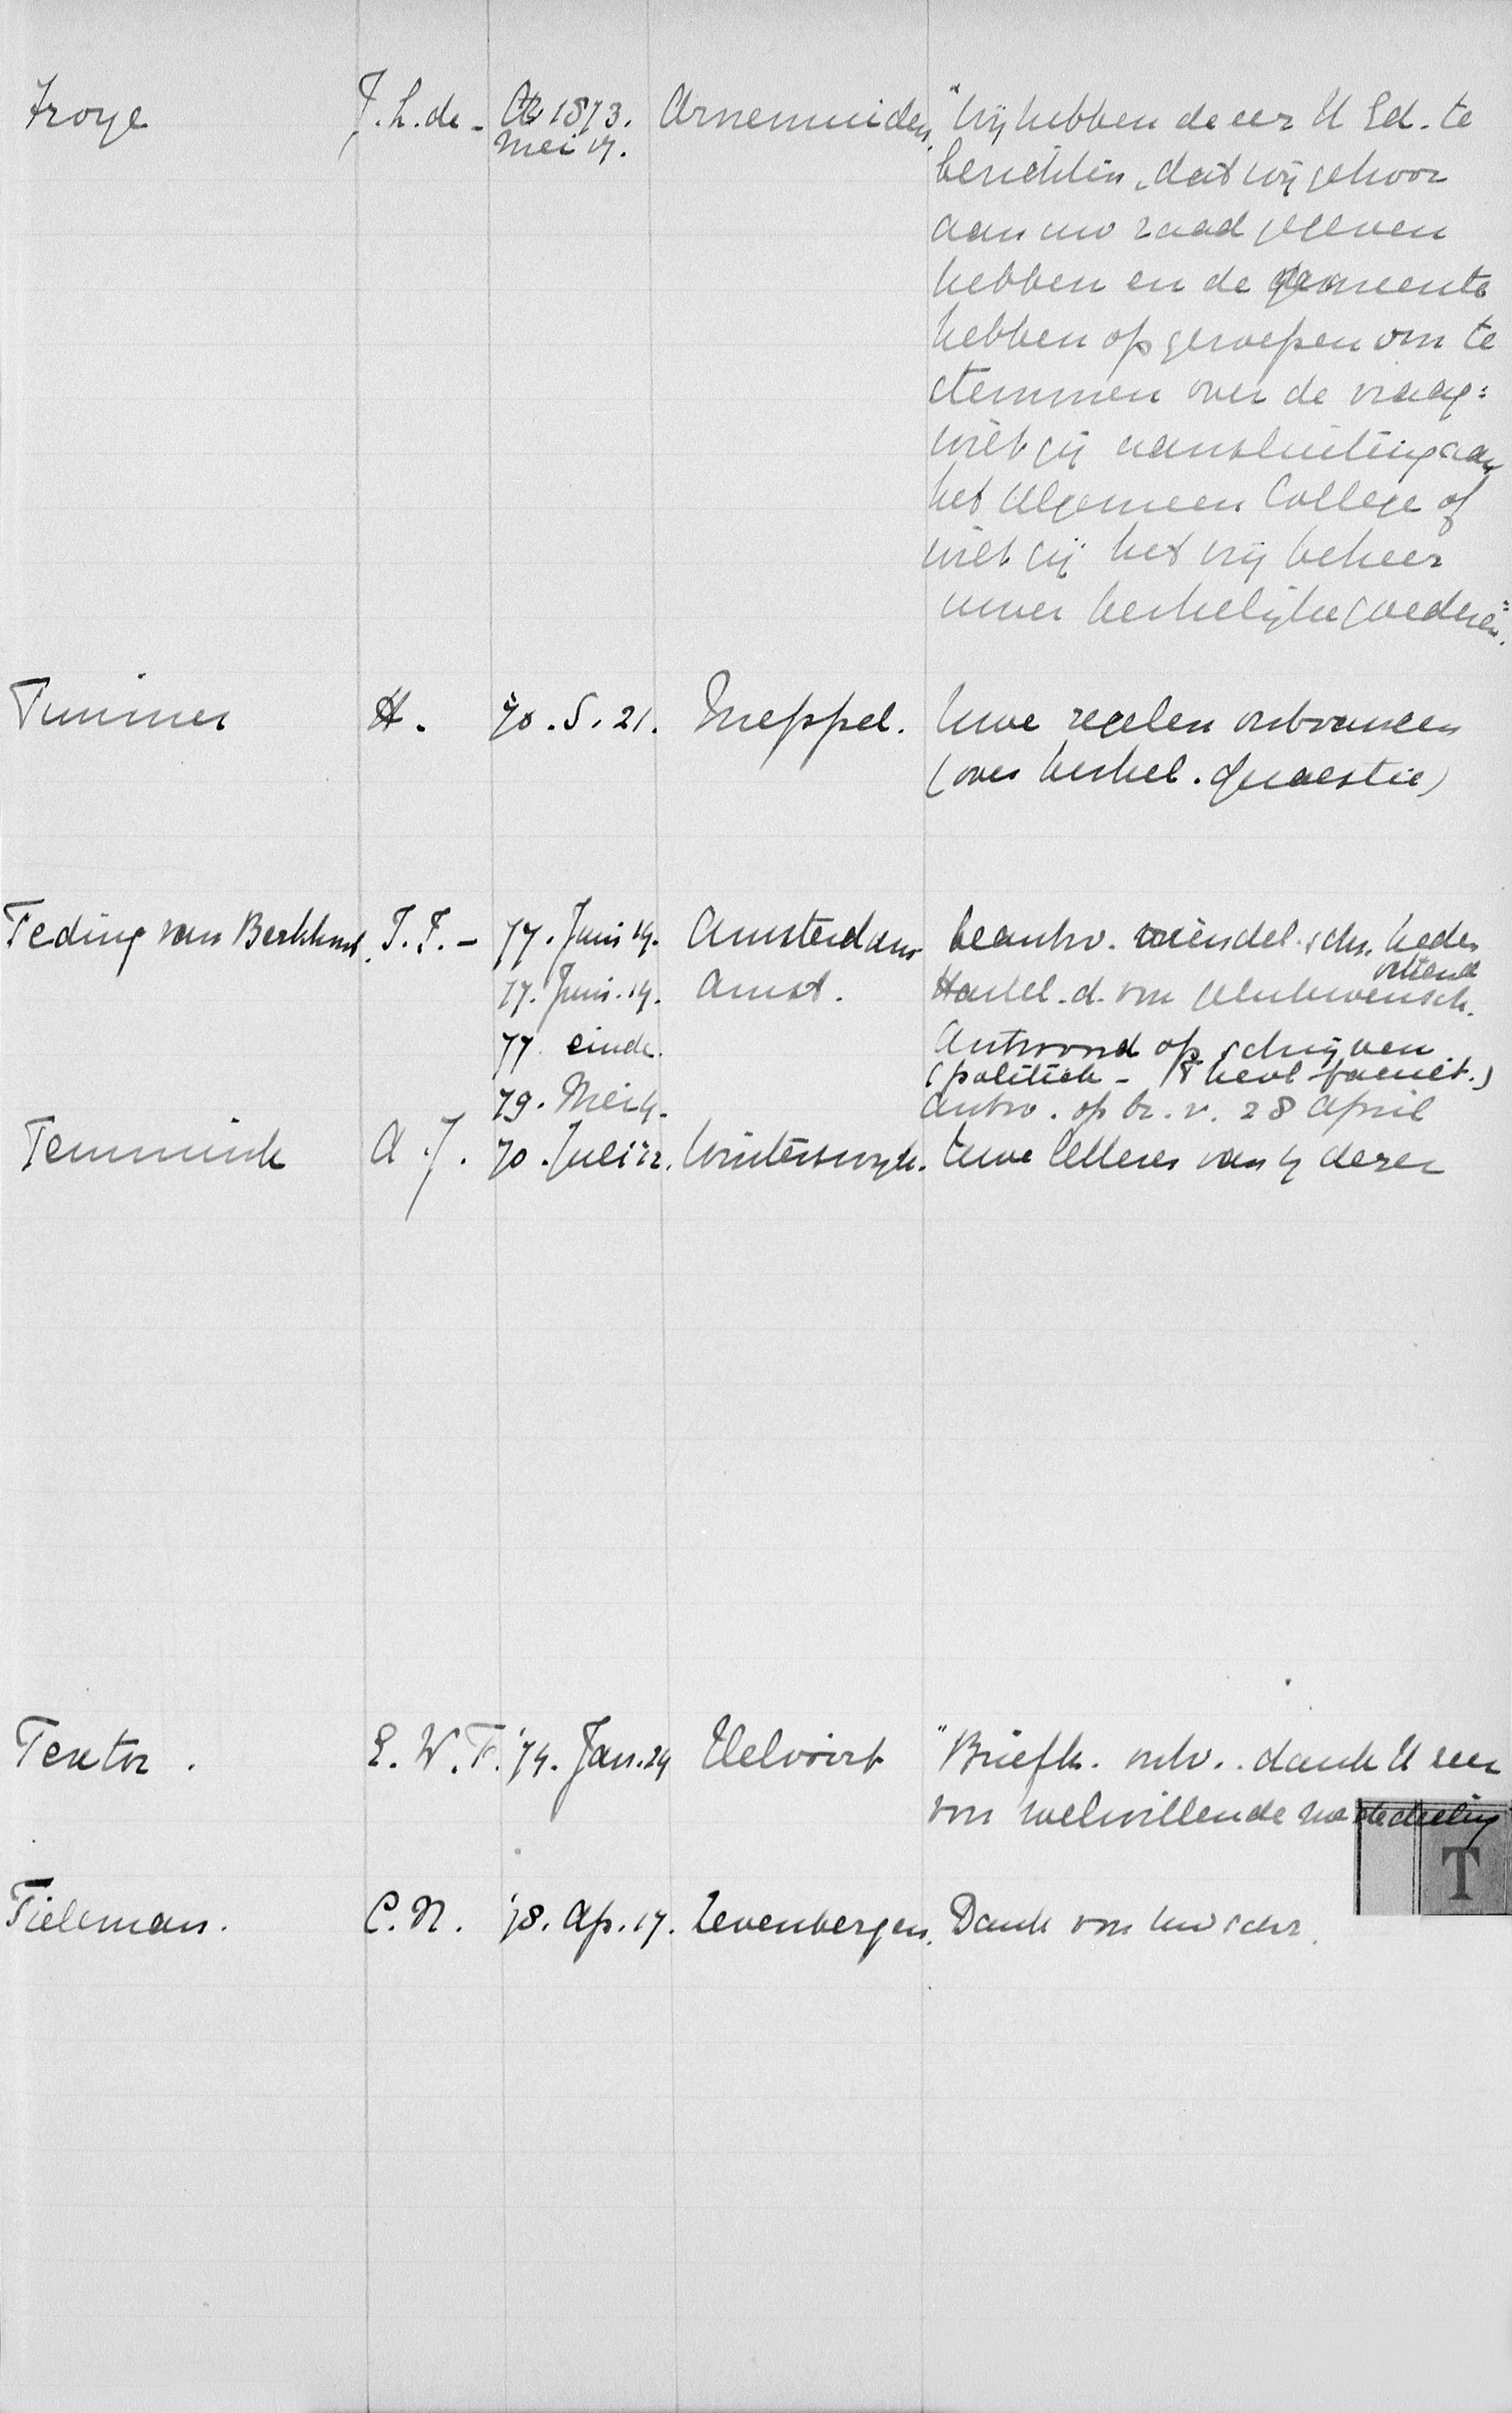 Troye J. L. de - 1873. Arnemuiden. "Wij hebben de eer U Ed. te
Mei 17. berichten, dat wij gehoor
aan uw raad gegeven
hebben en de gemeente
hebben opgeroepen om te
stemmen over de vraag:
wilt gij aansluiting aan
het Algemeen College of
wilt gij het vrij beheer
uwer kerkelijke goederen".
H. 70. 5. 21. Meppel. Uwe regelen ontvangen
(over kerkel. quaestie)
Teding van Berkhout. T. F. - 77. Juni 14. Amsterdam beantw. vriendel. schr. heden
ochtend
77. Juni. 14. Amst. Hartel. d. voor gelukwensch.
77 einde. Antwoord op schrijven
(politiek -
79. Mei 4. antw. op br. v. 28 April
Temminck A. J. 70. Juli 12. Winterswijk. Uwe letteren van 4 dezer
Textor. E. W. F. '74. Jan. 24 Helvoirt "Briefk. ontv.. dank U zeer
voor welwillende mededeeling
T
Tieleman. C. N. '78. Ap. 17. Zevenbergen. Dank voor uw schr.